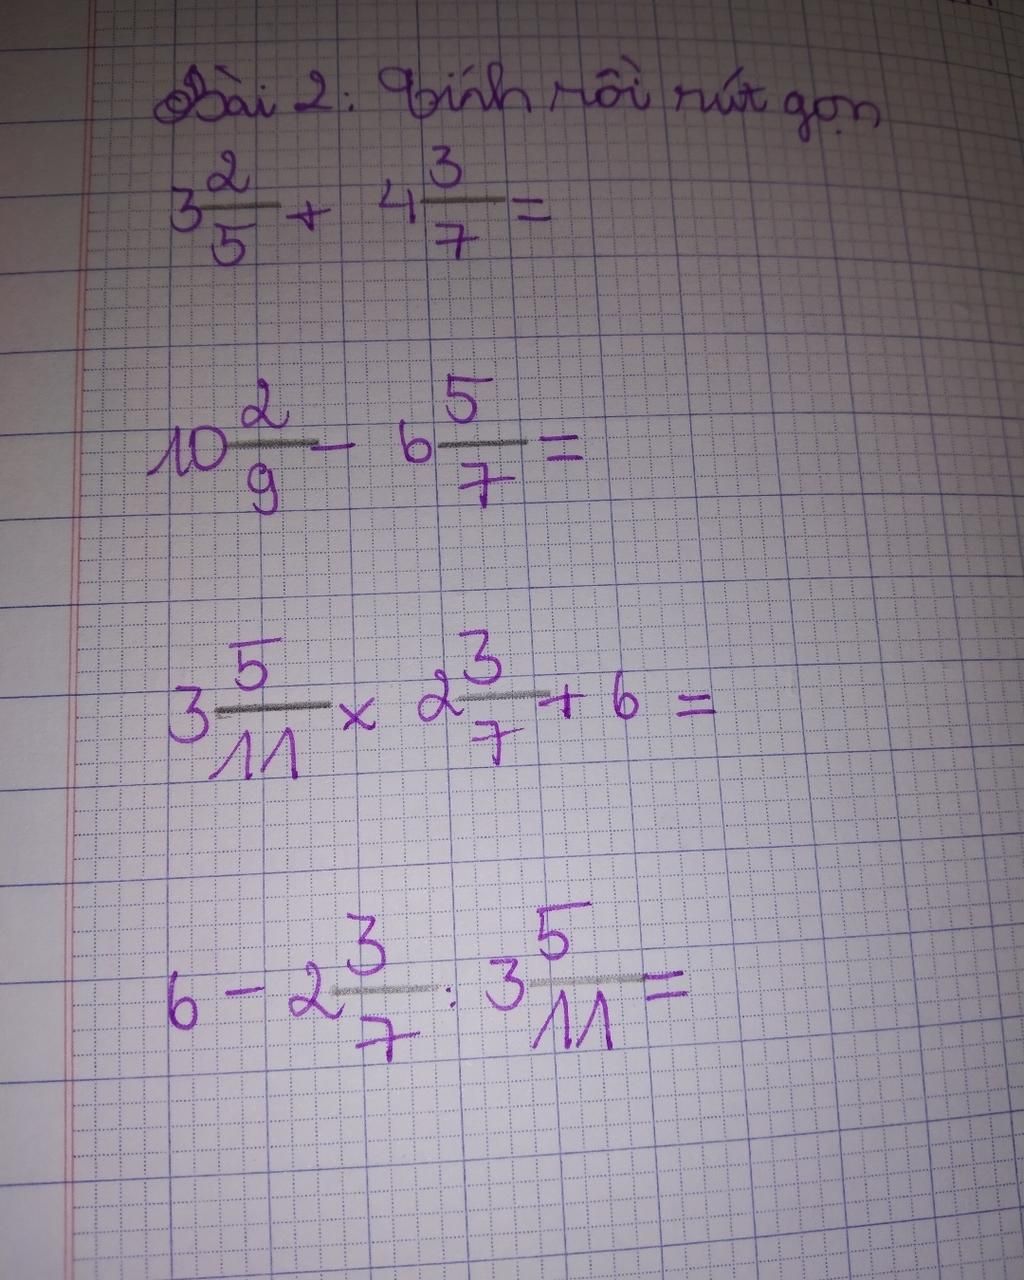 Bài 2: Tính rồi rút gọn
3 2/5 + 4 3/7 =
10 2/9 - 6 5/7 =
3 5/11 x 2 3/7 + 6 =
6 - 2 3/7 : 3 5/11 =